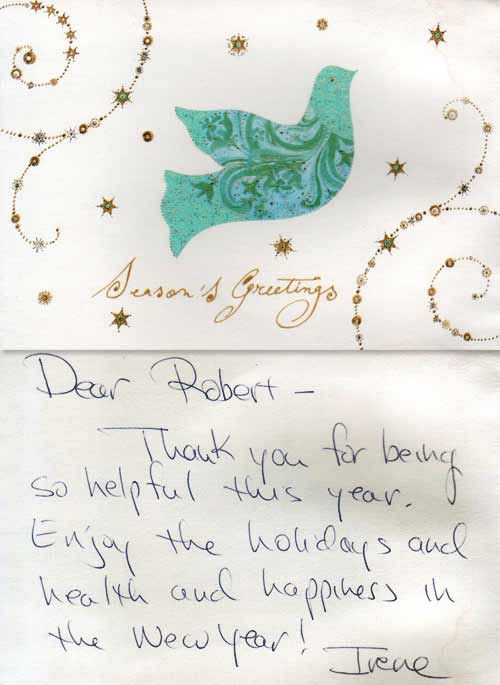 Season's Greetings
Dear Robert -
Thank you for being
so helpful this year.
Enjoy the holidays and
health and happiness in
the New Year!
Irene